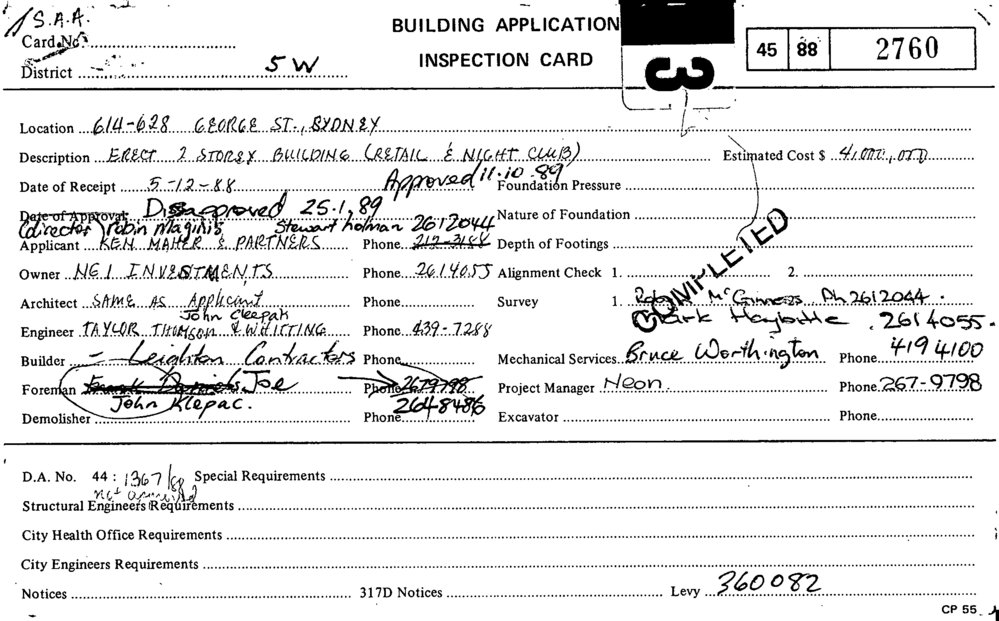 S.A.A.
Card No.
BUILDING APPLICATION
INSPECTION CARD
3
45 88 2760
District 5 W
Location 614-628 GEORGE ST., SYDNEY
Description ERECT 2 STOREY BUILDING (RETAIL & NIGHT CLUB) Estimated Cost $ 4,000,000
Date of Receipt 5-12-88 Approved 11.10.89 Foundation Pressure
Date of Approval Disapproved 25.1.89 Nature of Foundation
(director) robin Maginis Stewart holman 2612044
Applicant KEN MAHER & PARTNERS Phone 212-3188 Depth of Footings
COMPLETED
Owner NGI INVESTMENTS Phone 2614055 Alignment Check 1. 2.
Architect SAME AS Applicant Phone Survey 1. McGinness Ph 2612044.
John Cleepak
Engineer TAYLOR THOMSON & WHITTING Phone 439-7288 2614055.
Builder - Leighton Contractors Phone Mechanical Services Bruce Worthington Phone 4194100
Foreman Joe Phone 2679798 Project Manager Neon. Phone 267-9798
John Klepac. 2648486
Demolisher Phone Excavator Phone
D.A. No. 44: 1367/89 Special Requirements
not
Structural Engineers Requirements
City Health Office Requirements
City Engineers Requirements
Notices 317D Notices Levy 360082
CP 55